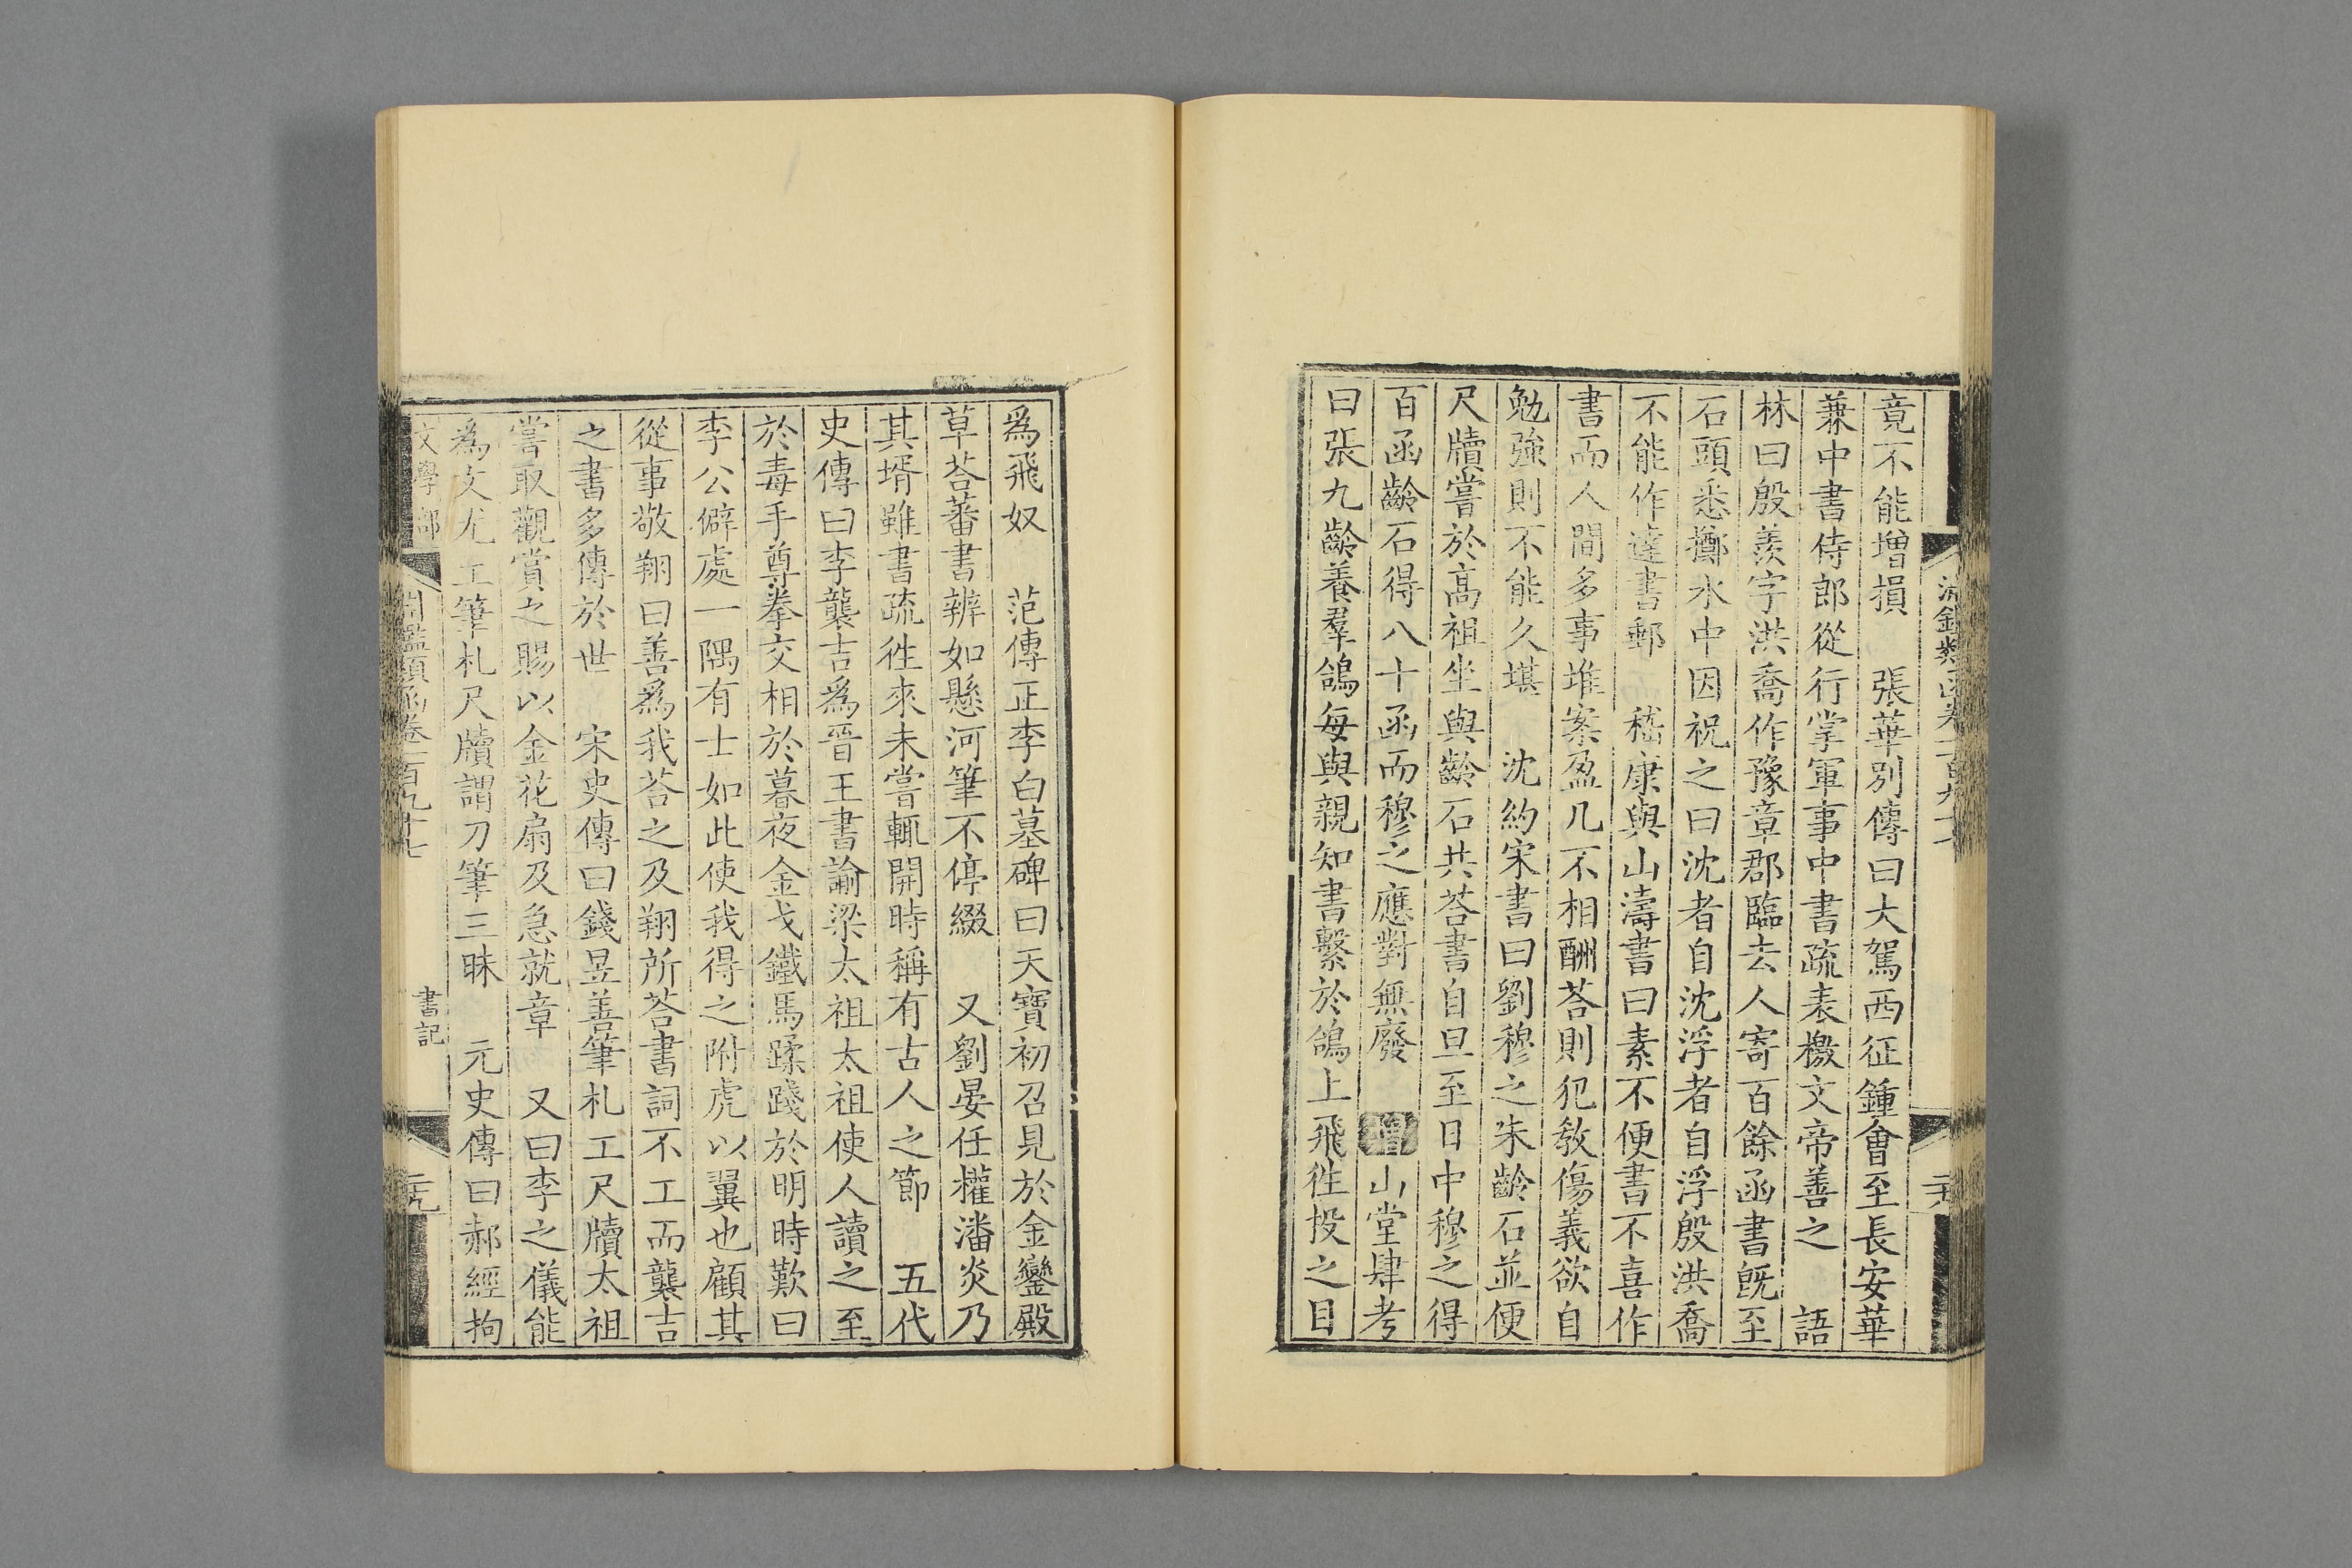 竟不能增損　張華別傳曰大駕西征鍾會至長安華
兼中書侍郎從行掌軍事中書疏表檄文帝善之　語
林曰殷羨字洪喬作豫章郡臨去人寄百餘函書旣至
石頭悉擲水中因祝之曰沈者自沈浮者自浮殷洪喬
不能作達書郵　嵇康與山濤書曰素不便書不喜作
書而人間多事堆案盈几不相酬荅則犯敎傷義欲自
勉強則不能久堪　沈約宋書曰劉穆之朱齡石並便
尺牘嘗於高祖坐與齡石共荅書自旦至日中穆之得
百函齡石得八十函而穆之應對無廢　增山堂肆考
曰張九齡養羣鴿每與親知書繫於鴿上飛徃投之目
爲飛奴　范傳正李白墓碑曰天寶初召見於金鑾殿
草荅蕃書辨如懸河筆不停綴　又劉晏任權潘炎乃
其壻雖書疏徃來未嘗輒開時稱有古人之節　五代
史傳曰李襲吉爲晉王書諭梁太祖太祖使人讀之至
於毒手尊拳交相於暮夜金戈鐵馬蹂踐於明時歎曰
李公僻處一隅有士如此使我得之附虎以翼也顧其
從事敬翔曰善爲我荅之及翔所荅書詞不工而襲吉
之書多傳於世　宋史傳曰錢昱善筆札工尺牘太祖
嘗取觀賞之賜以金花扇及急就章　又曰李之儀能
爲文尤工筆札尺牘謂刀筆三昧　元史傳曰郝經拘
文學部　淵鑑類函卷一百九十七　書記　二十九